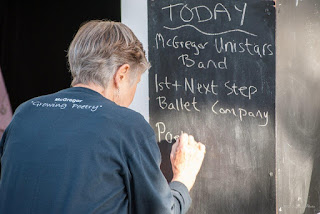 TODAY
McGregor Unistars
Band
1st + Next Step
Ballet Company
Poe
McGregor
"Growing Poetry"